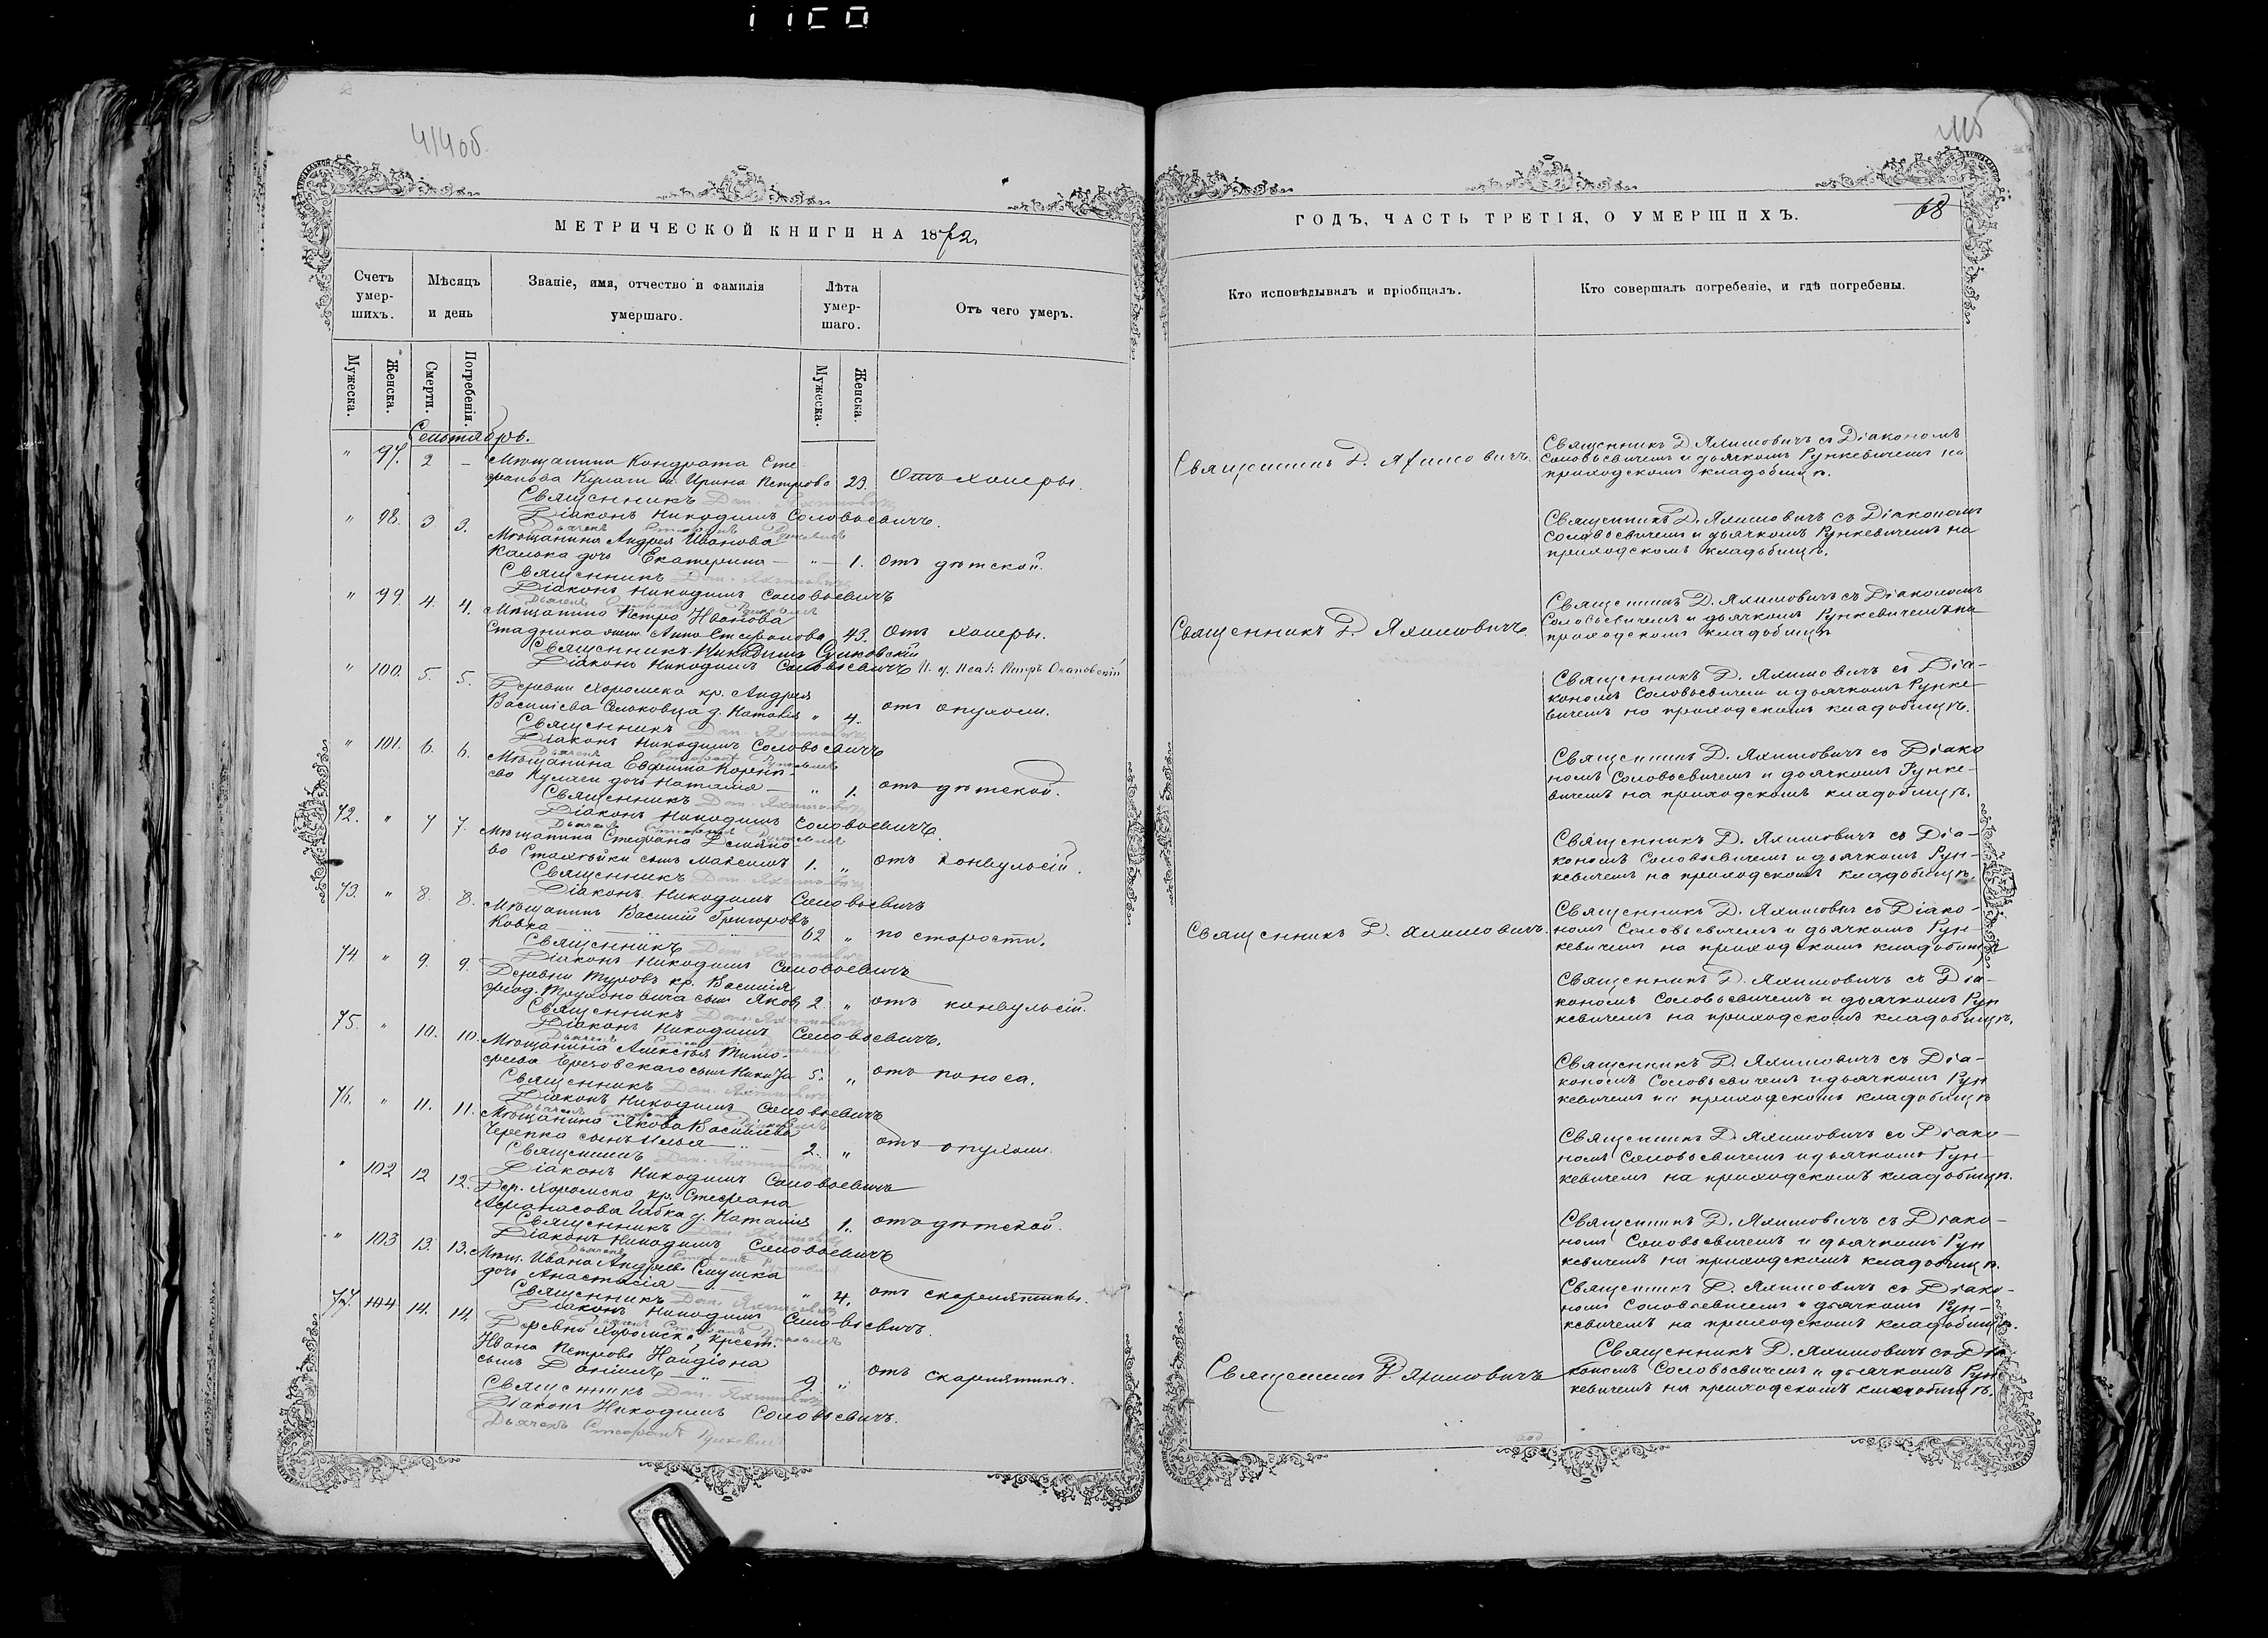 414 об
МЕТРИЧЕСКОЙ КНИГИ НА 1872
Счетъ умер-шихъ.
Мѣсяцъ и день
Званіе, имя, отчество и фамилія умершаго.
Лѣта умер-шаго.
Отъ чего умеръ.
Мужеска.
Женска.
Смерти.
Погребенія.
Мужеска.
Женска.
Сентябрь.
" 97. 2 –
Мѣщанина Кондрата Сте
фанова Кулаги ж. Ирина Петрова 29. Отъ холеры.
Священникъ Дан. Яхимовичъ
Діаконъ Никодимъ Соловьевичъ.
" 98. 3. 3.
Дьячекъ Стефанъ Рункевичъ
Мѣщанина Андрея Иванова
Калька дочь Екатерина — " — 1. отъ дѣтской.
Священникъ Дан. Яхимовичъ
Діаконъ Никодимъ Соловьевичъ
" 99. 4. 4.
Дьячекъ Стефанъ Рункевичъ
Мѣщанина Петра Иванова
Стадника жена Анна Стефанова 43. Отъ холеры.
Священникъ Никодимъ
Діаконъ Никодимъ Соловьевичъ И. д. Псал: Петръ
" 100. 5. 5.
Деревни Хоромска кр. Андрея
Василіева д. Наталія " 4. отъ опухоли.
Священникъ Дан. Яхимовичъ
Діаконъ Никодимъ Соловьевичъ
" 101. 6. 6.
Дьячекъ Стефанъ Рункевичъ
Мѣщанина Ефима
Кулаги дочь Наталія — " 1. отъ дѣтской.
Священникъ Дан. Яхимовичъ
Діаконъ Никодимъ Соловьевичъ.
72. " 7 7.
Дьячекъ Стефанъ Рункевичъ
Мѣщанина Стефана
сынъ Максимъ 1. " отъ конвульсій.
Священникъ Дан. Яхимовичъ
Діаконъ Никодимъ Соловьевичъ
73. " 8. 8.
Мѣщанинъ Василій Григоровъ
Ковка 62 " по старости.
Священникъ Дан. Яхимовичъ
Діаконъ Никодимъ Соловьевичъ
74. " 9. 9.
Деревни Туровъ кр. Василія
Ѳеод. Трухоновича сынъ Яковъ 2. " отъ конвульсій.
Священникъ Дан. Яхимовичъ
Діаконъ Никодимъ Соловьевичъ.
75. " 10. 10.
Дьячекъ Стефанъ Рункевичъ
Мѣщанина Алексѣя Тимо-
феева сынъ Никита 5. " отъ поноса.
Священникъ Дан. Яхимовичъ
Діаконъ Никодимъ Соловьевичъ
76. " 11. 11.
Дьячекъ Стефанъ Рункевичъ
Мѣщанина Якова Василіева
Черепка сынъ Илья — 2. " отъ опухоли.
Священникъ Дан. Яхимовичъ
Діаконъ Никодимъ Соловьевичъ
" 102 12 12.
Дер. Хоромска кр. Стефана
Афанасова д. Наталія 1. отъ дѣтской.
Священникъ Дан. Яхимовичъ
Діаконъ Никодимъ Соловьевичъ
" 103 13. 13.
Дьячекъ Стефанъ Рункевичъ
Мѣщ. Ивана Андреева
дочь Анастасія — " 4. отъ скарлятины.
Священникъ Дан. Яхимовичъ
Діаконъ Никодимъ Соловьевичъ.
77. 104 14. 14.
Дьячекъ Стефанъ Рункевичъ
Деревни Хоромска крест.
Ивана Петрова
сынъ Даніилъ — 9. " отъ скарлятины.
Священникъ Дан. Яхимовичъ
Діаконъ Никодимъ Соловьевичъ.
Дьячекъ Стефанъ Рункевичъ
ГОДЪ, ЧАСТЬ ТРЕТІЯ, О УМЕРШИХЪ.
68
Кто исповѣдывалъ и пріобщалъ.
Кто совершалъ погребеніе, и гдѣ погребены.
Священникъ Д. Яхимовичъ.
Священникъ Д. Яхимовичъ съ Діакономъ
Соловьевичемъ и дьячкомъ Рункевичемъ на
приходскомъ кладбищѣ.
Священникъ Д. Яхимовичъ съ Діакономъ
Соловьевичемъ и дьячкомъ Рункевичемъ на
приходскомъ кладбищѣ.
Священникъ Д. Яхимовичъ.
Священникъ Д. Яхимовичъ съ Діакономъ
Соловьевичемъ и дьячкомъ Рункевичемъ на
приходскомъ кладбищѣ
Священникъ Д. Яхимовичъ съ Діа-
кономъ Соловьевичемъ и дьячкомъ Рунке-
вичемъ на приходскомъ кладбищѣ.
Священникъ Д. Яхимовичъ съ Діако
номъ Соловьевичемъ и дьячкомъ Рунке-
вичемъ на приходскомъ кладбищѣ.
Священникъ Д. Яхимовичъ съ Діа-
кономъ Соловьевичемъ и дьячкомъ Рун-
кевичемъ на приходскомъ кладбищѣ.
Священникъ Д. Яхимовичъ.
Священникъ Д. Яхимовичъ съ Діако-
номъ Соловьевичемъ и дьячкомъ Рун
кевичемъ на приходскомъ кладбищѣ
Священникъ Д. Яхимовичъ съ Діа-
кономъ Соловьевичемъ и дьячкомъ Рун
кевичемъ на приходскомъ кладбищѣ.
Священникъ Д. Яхимовичъ съ Діа-
кономъ Соловьевичемъ и дьячкомъ Рун
кевичемъ на приходскомъ кладбищѣ
Священникъ Д. Яхимовичъ съ Діако-
номъ Соловьевичемъ и дьячкомъ Рун-
кевичемъ на приходскомъ кладбищѣ.
Священникъ Д. Яхимовичъ съ Діако-
номъ Соловьевичемъ и дьячкомъ Рун
кевичемъ на приходскомъ кладбищѣ.
Священникъ Д. Яхимовичъ съ Діако-
номъ Соловьевичемъ и дьячкомъ Рун-
кевичемъ на приходскомъ кладбищѣ.
Священникъ Д. Яхимовичъ
Священникъ Д. Яхимовичъ съ Діа
кономъ Соловьевичемъ и дьячкомъ Рун
кевичемъ на приходскомъ кладбищѣ.